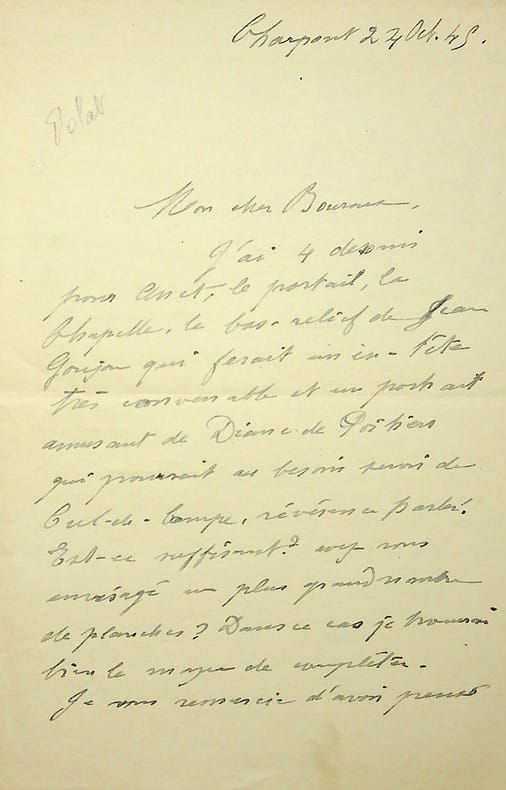 Charpont 24 Oct. 45.
Polat
Mon cher Bouroux,
J'ai 4 dessins
pour Anet, le portail, la
Chapelle, le bas-relief de Jean
Goujon qui ferait un en-tête
très convenable et un portrait
amusant de Diane de Poitiers
qui pourrait au besoin servir de
Cul-de-lampe, révérence parler.
Est-ce suffisant? avez vous
envisagé un plus grand nombre
de planches? Dans ce cas je trouverai
bien le moyen de compléter.
Je vous remercie d'avoir pensé